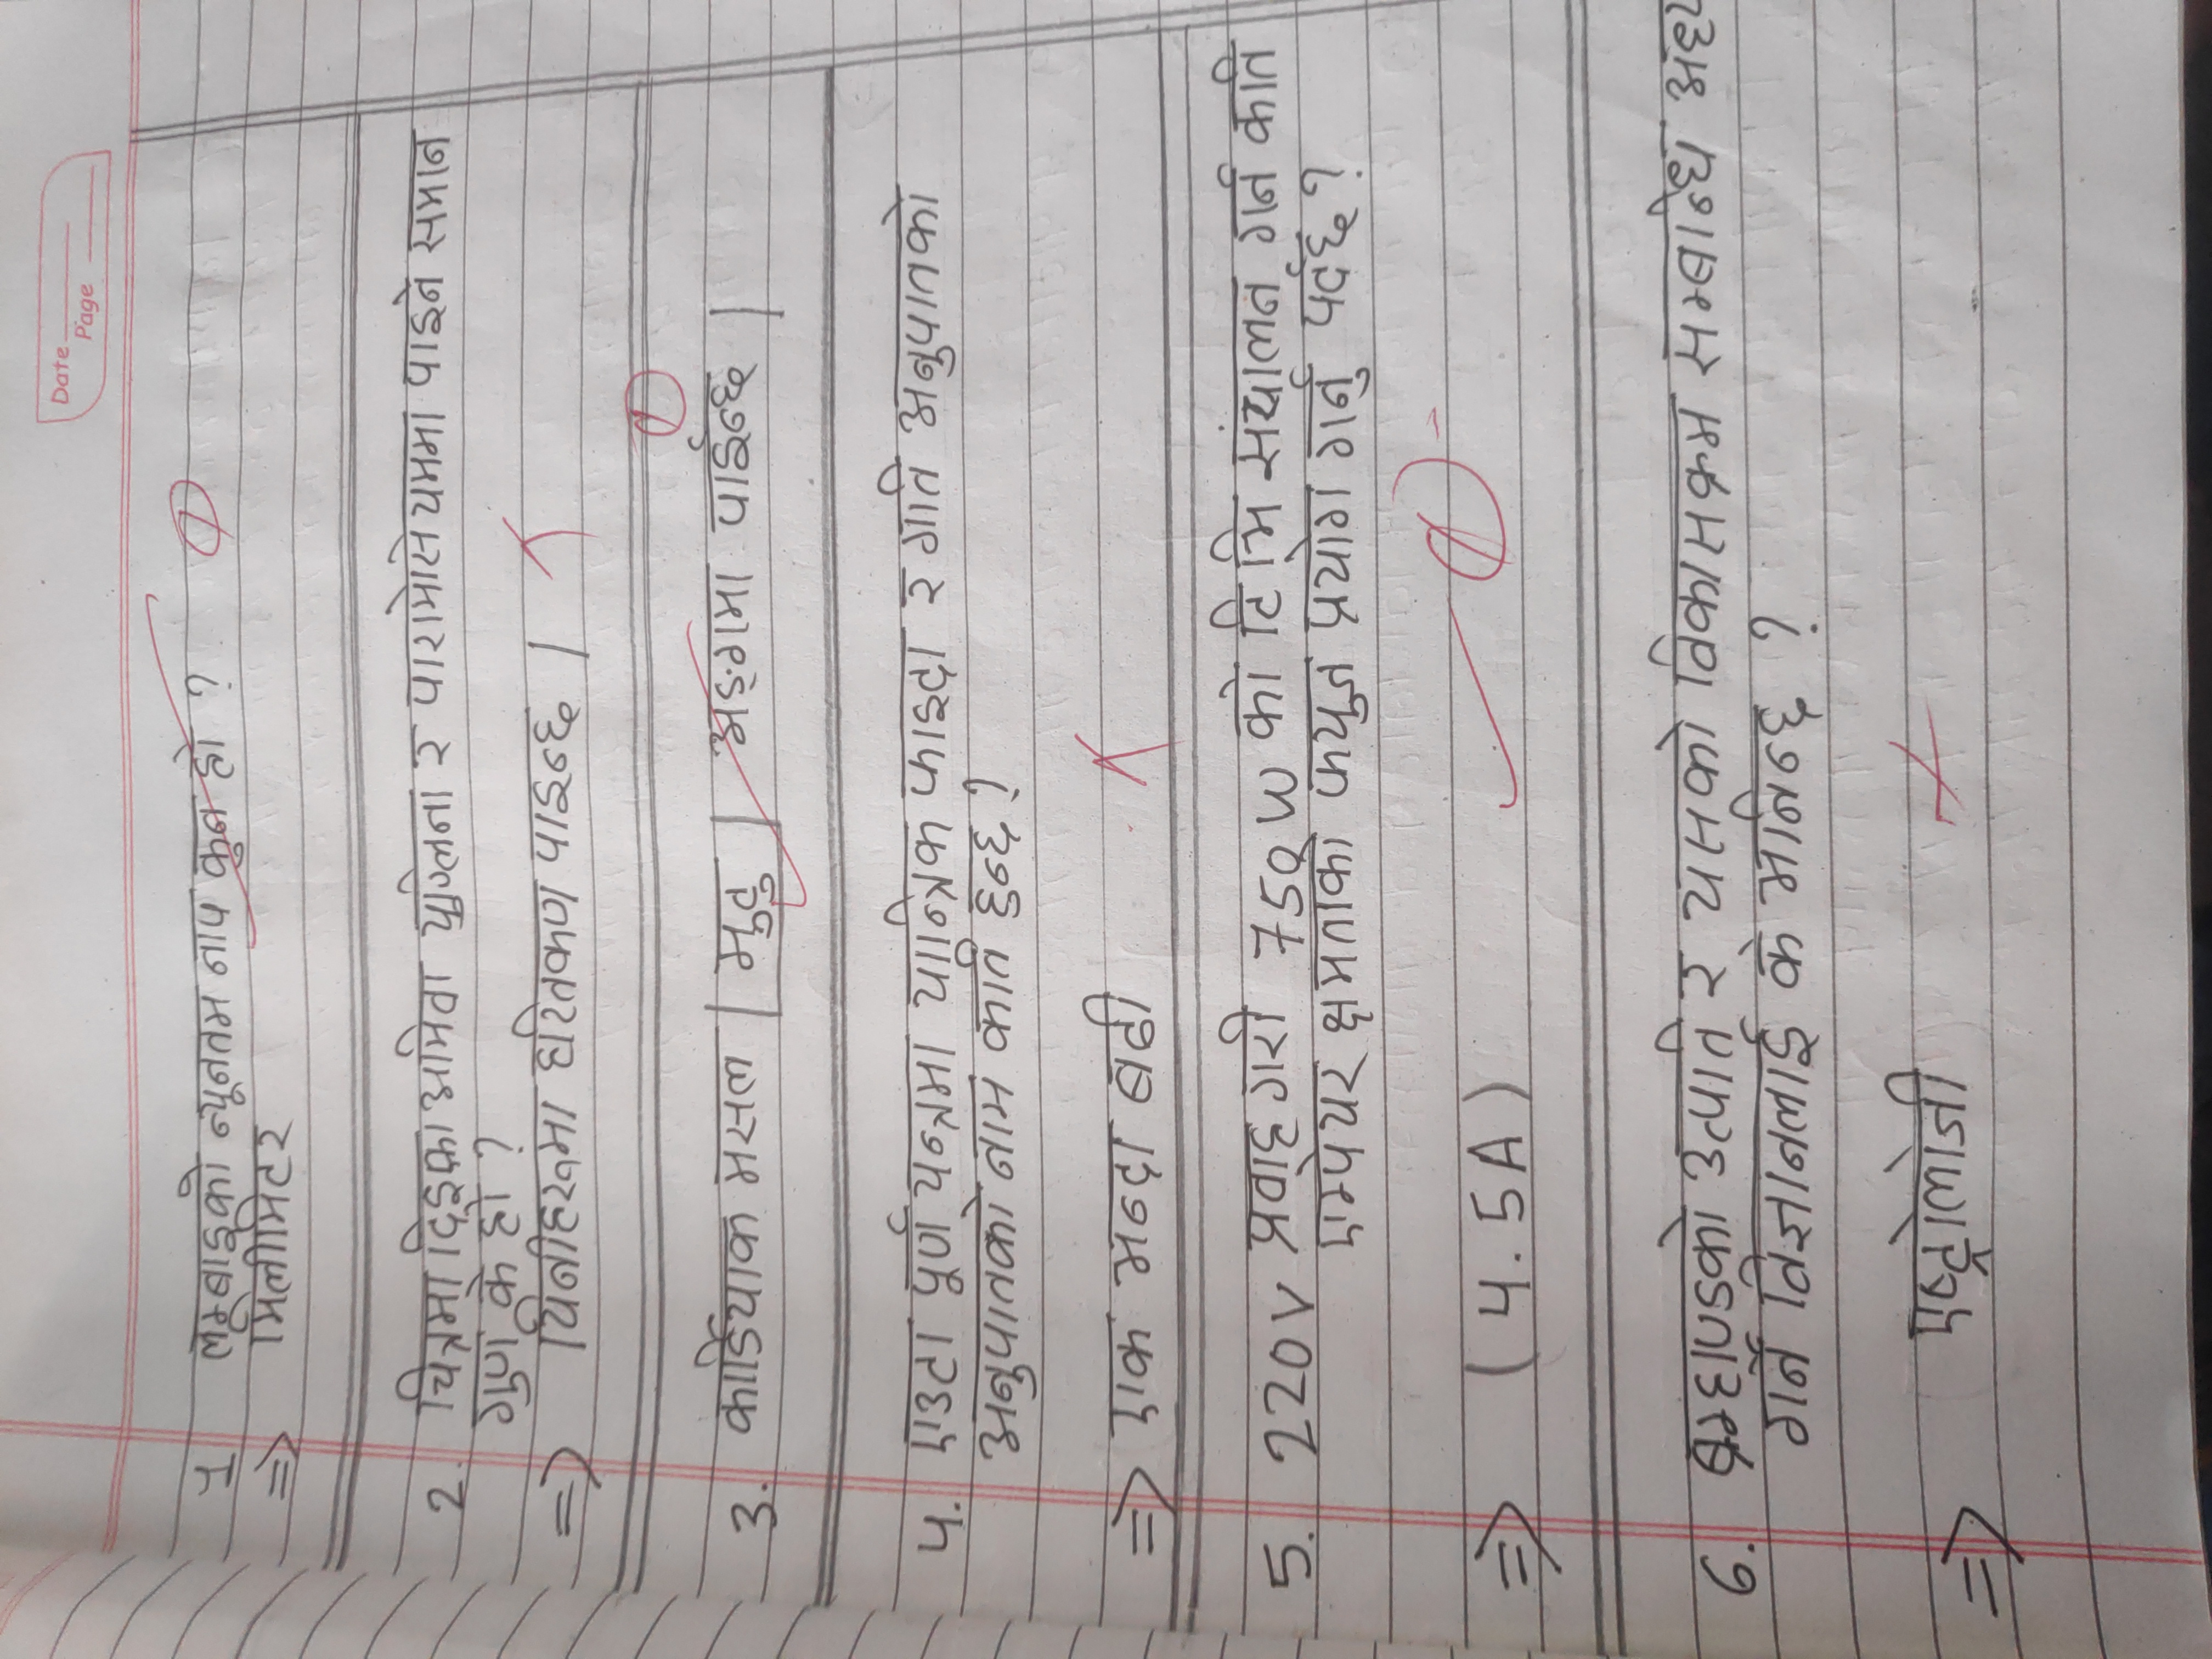 Date
Page
1 लम्बाइको न्यूनतम नाप कुन हो ? 1
=> मिलीमिटर
2. चित्रमा दिइका अमिवा युग्लिना र पारामोसेयममा पाइने समान
गुण के हो ?
=> यिनीहरूमा हरितकण पाइन्छ |
1
3. कार्डियाक मसल | मुटु | अङ्गमा पाईन्छ |
4. एउटा पूर्ण यन्त्रमा यान्त्रिक फाइदा र गति अनुपातको
अनुपातको नाम कति हुन्छ ?
=> एक भन्दा बढी
5. 220V प्रवाह गरी 750W को टि भि संचालन गर्न कति
एम्पेयर क्षमताको फयुज प्रयोग गर्नु पर्दछ ?
=> (4.5A) 1
6. ब्रम्हाण्डको उत्पति र यसको विकासक्रम सम्बान्धि अध्य
गर्ने विज्ञानलाई के भनिन्छ ?
=> एष्ट्रोलोजी